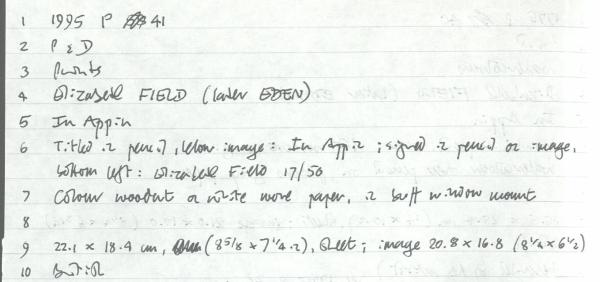 1 1995 P 41
2 P & D
3 Prints
4 Elizabeth FIELD (later EDEN)
5 In Appin
6 Titled in pencil, below image: In Appin; signed in pencil on image,
bottom left: Elizabeth Field 17/50
7 Colour woodcut on white wove paper, in buff window mount
8
9 22.1 x 18.4 cm, (8 5/8 x 7 1/4 in), sheet; image 20.8 x 16.8 (8 1/4 x 6 1/2)
10 British